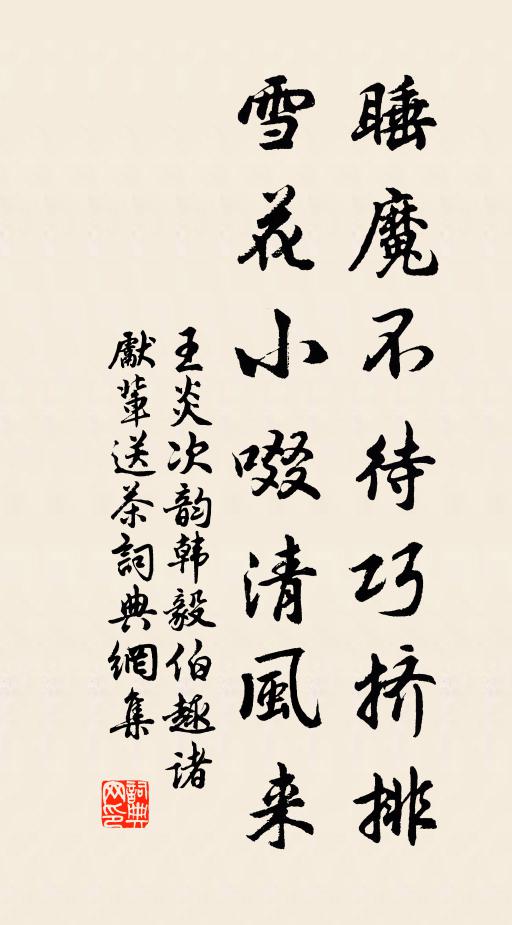 睡魔不待巧挤排
雪花小啜清風来
王炎次韵韩毅伯趣诸
獻輩送茶詞典網集
詞典网印